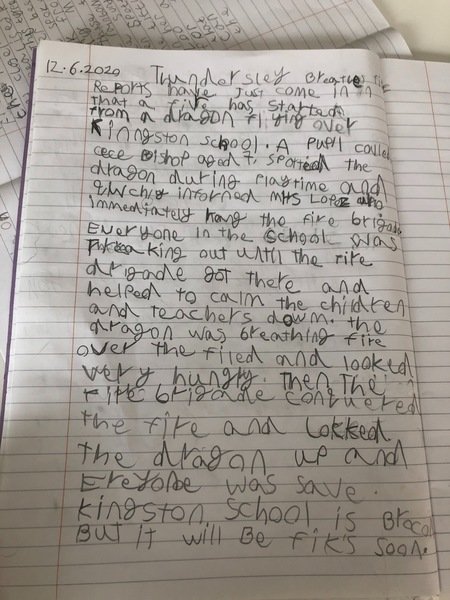 12.6.2020 Thundersley Breathe fire
Reports have just come in in
that a fire has started
from a dragon flying over
Kinngston school. A pupil called
cece Bishop aged 7, spotted the
dragon during playtime and
qiwchly informed mrs Lopez who
immediately hang the fire brigade
Everyone in the school was
freaking out until the fire
drigade got there and
helped to calm the children
and teachers down. the
dragon was breathing fire
over the filed and looked
very hungry. Then The
Fire brigade conquered
the fire and Lokked
the dragon up and
Ereyobe was save.
Kingston School is Broco
But it will Be fiks soon.